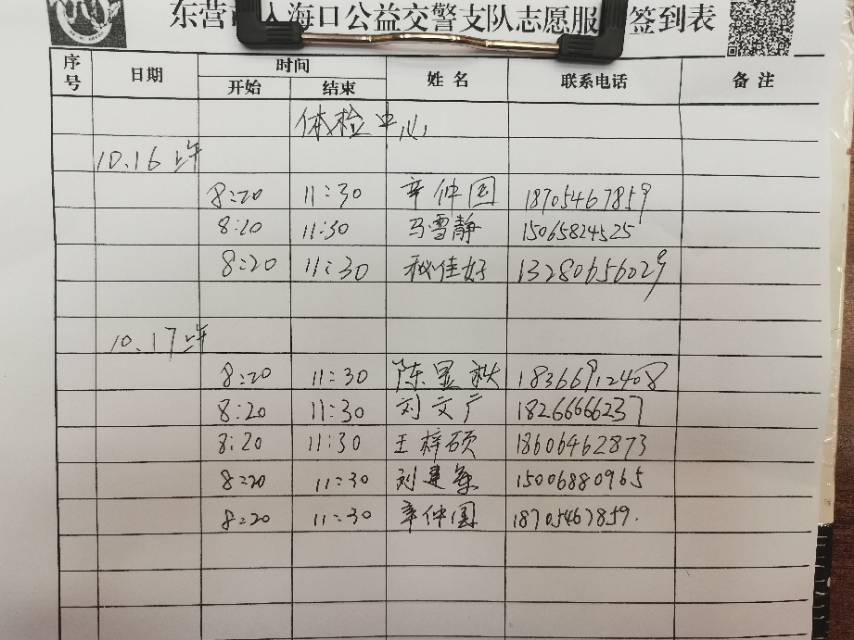 东营市入海口公益交警支队志愿服 签到表
序号 日期 时间 姓名 联系电话 备注
开始 结束
体检中心
10.16上午
8:20 11:30 辛仲国 18705467859
8:20 11:30 马雪静 15065824525
8:20 11:30 秘佳好 13280656029
10.17上午
8:20 11:30 陈显秋 18366912408
8:20 11:30 刘文广 18266666237
8:20 11:30 王梓硕 18606462873
8:20 11:30 刘建 15006880965
8:20 11:30 辛仲国 18705467859.